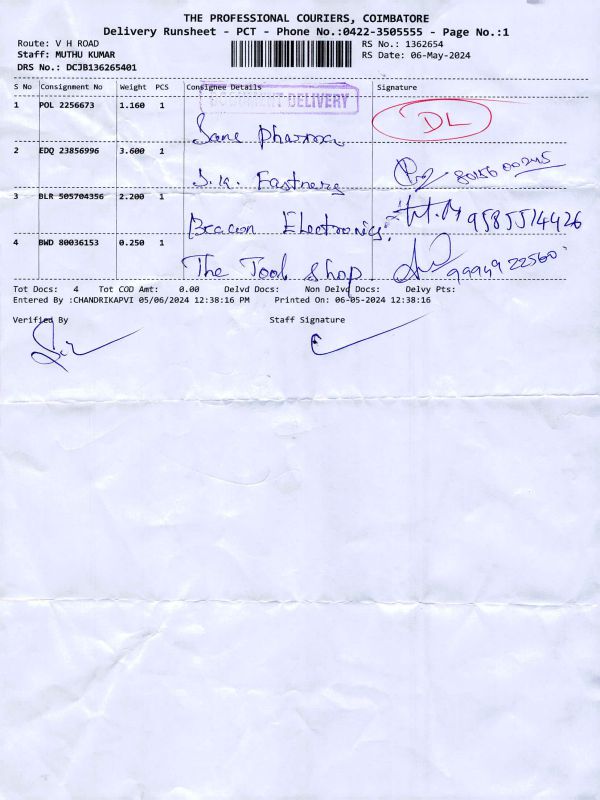 THE PROFESSIONAL COURIERS, COIMBATORE
Delivery Runsheet - PCT - Phone No.:0422-3505555 - Page No.:1
Route: V H ROAD RS No.: 1362654
Staff: MUTHU KUMAR RS Date: 06-May-2024
DRS No.: DCJB136265401
S No Consignment No Weight PCS Consignee Details Signature
DELIVERY
1 POL 2256673 1.160 1 DL
Sane Pharma
2 EDQ 23856996 3.600 1 80156 00245
S.K. Fastners
3 BLR 505704356 2.200 1
Beacon Electronics. 9585514426
4 BWD 80036153 0.250 1
The Tool Shop 99949 22560
Tot Docs: 4 Tot COD Amt: 0.00 Delvd Docs: Non Delvd Docs: Delvy Pts:
Entered By :CHANDRIKAPVI 05/06/2024 12:38:16 PM Printed On: 06-05-2024 12:38:16
Verified By Staff Signature